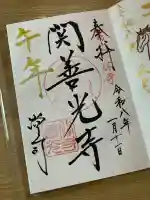 奉拝
令和八年
一月十一日
関善光寺
午年